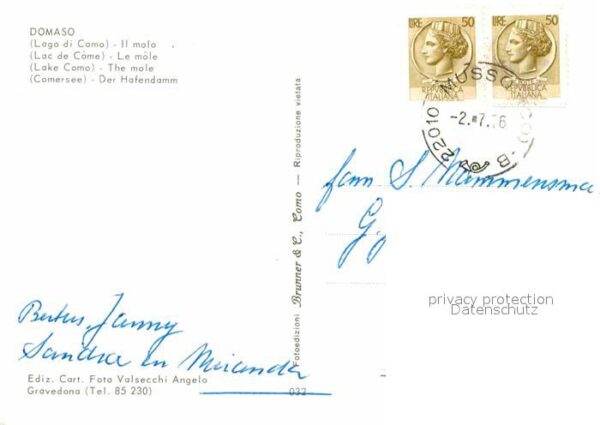 DOMASO
(Lago di Como) - Il molo
(Lac de Côme) - Le môle
(Lake Como) - The mole
(Comersee) - Der Hafendamm
LIRE 50
LIRE 50
REPVBBLICA
ITALIANA
REPVBBLICA
ITALIANA
22010 MUSSO (CO) - B
-2.7.76
Fotoedizioni Brunner & C., Como — Riproduzione vietata
fam S.
G.
privacy protection
Datenschutz
Bertus, Janny
Sandra en Miranda
Ediz. Cart. Foto Valsecchi Angelo
Gravedona (Tel. 85 230)
032